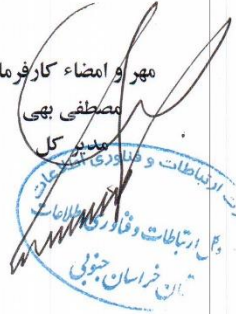 مهر و امضاء کارفرما
مصطفی بهی
مدیر کل
ارتباطات و فناوری اطلاعات
کل ارتباطات و فناوری اطلاعات
خراسان جنوبی